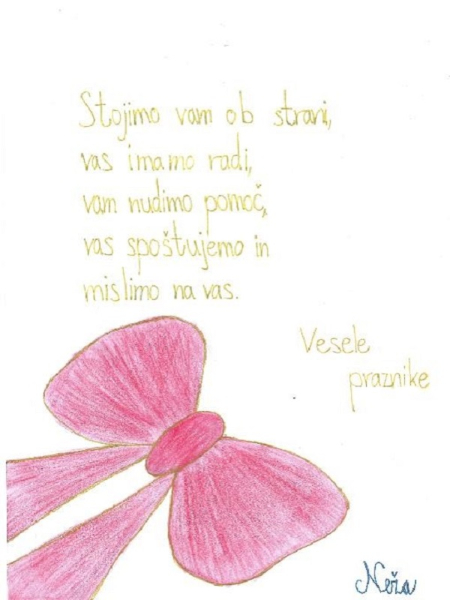 Stojimo vam ob strani,
vas imamo radi,
vam nudimo pomoč,
vas spoštujemo in
mislimo na vas.
Vesele
praznike
Neža